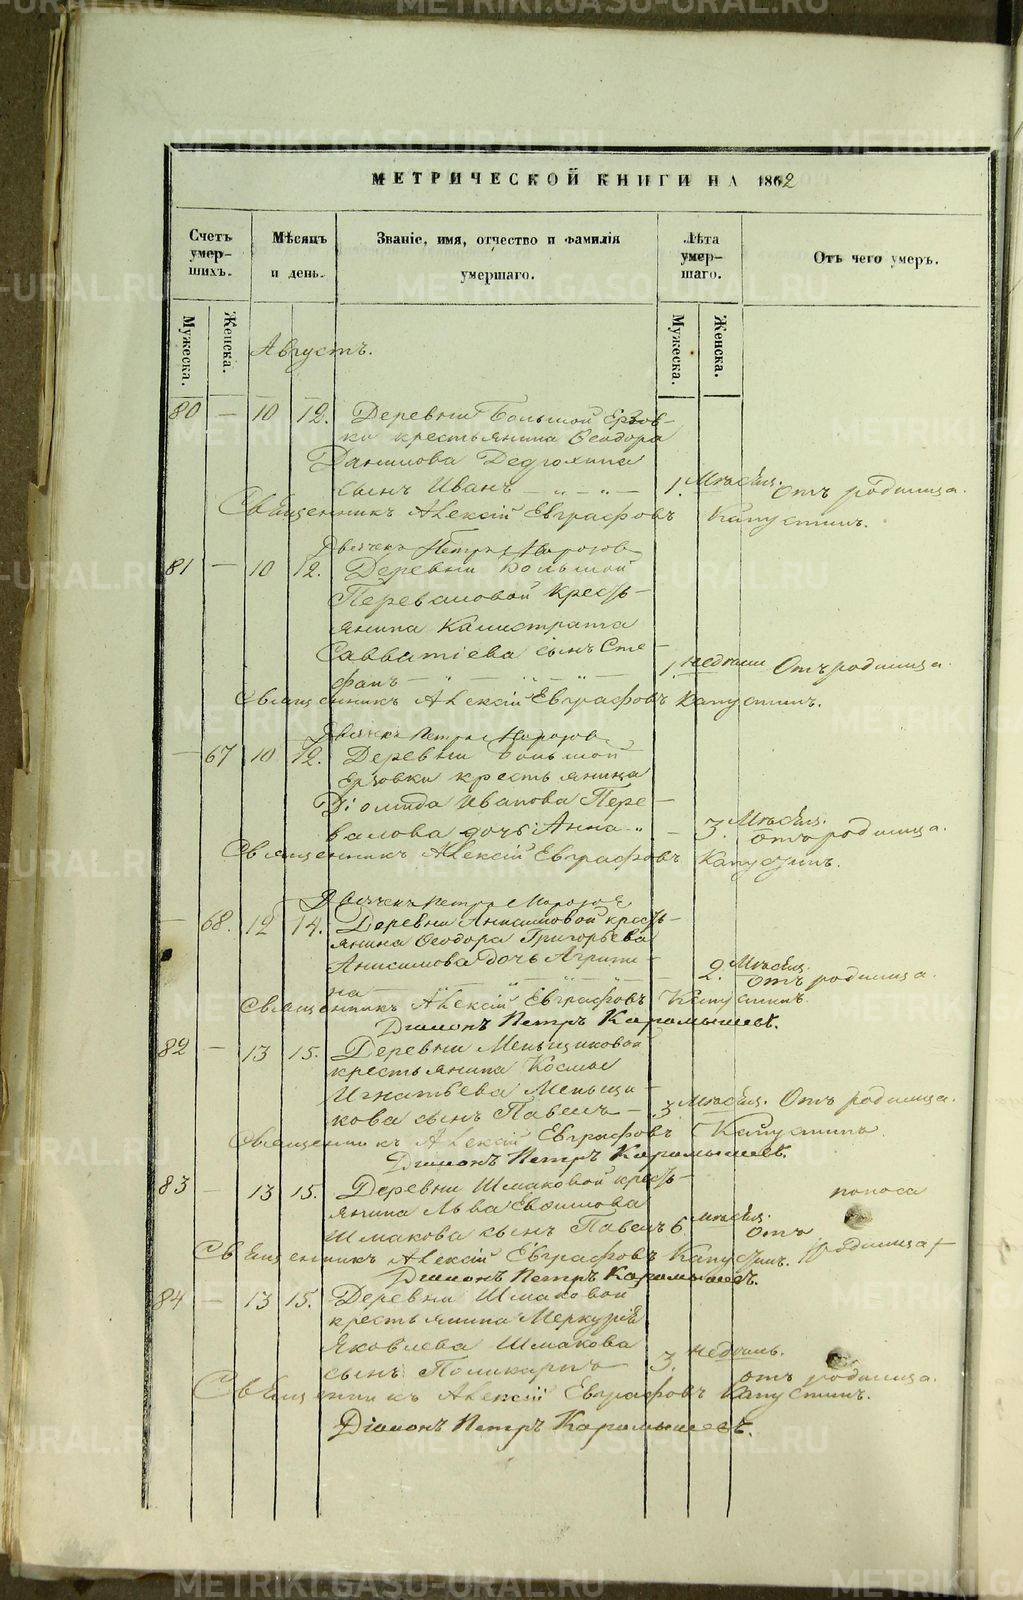 МЕТРИЧЕСКОЙ КНИГИ НА 1862
Счетъ умер-шихъ.
Мѣсяцъ и день.
Званіе, имя, отчество и фамилія умершаго.
Лѣта умер-шаго.
Отъ чего умеръ.
Мужеска.
Женска.
Мужеска.
Женска.
Августъ.
80 — 10 12. Деревни Большой Ерзов-
ки крестьянина Ѳеодора
Данилова
сынъ Иванъ — „ — „ — 1. Мѣсяц. Отъ родимца.
Священникъ Алексій Евграфовъ Капустинъ.
Дьячекъ Петръ Морозов
81 — 10 12. Деревни Большой
Переваловой кресть-
янина Калистрата
Савватіева сынъ Сте-
фанъ — „ — „ — „ — 1. недели Отъ родимца.
Священникъ Алексій Евграфовъ Капустинъ.
Дьячекъ Петръ Морозов
— 67 10 12. Деревни Большой
Ерзовки крестьянина
Діомида Иванова Пере-
валова дочь Анна „ — 3. Мѣсяц. отъ родимца.
Священникъ Алексій Евграфовъ Капустинъ.
Дьячекъ Петръ Морозов
— 68. 12 14. Деревни Анисимовой кресть-
янина Ѳеодора Григорьева
Анисимова дочь Агрипи-
на — „ — „ — „ — 2. Мѣсяц. отъ родимца.
Священникъ Алексій Евграфовъ Капустинъ.
Діаконъ Петръ Карамышевъ.
82 — 13 15. Деревни Меньщиковой
крестьянина Космы
Игнатьева Меньщи-
кова сынъ Павелъ — 3. Мѣсяц. Отъ родимца.
Священникъ Алексій Евграфовъ Капустинъ
Діаконъ Петръ Карамышевъ.
83 — 13 15. Деревни Шмаковой кресть-
янина Льва Евфимова поноса
Шмакова сынъ Павелъ 6. Мѣсяц. отъ родимца +
Священникъ Алексій Евграфовъ Капустинъ.
Діаконъ Петръ Карамышевъ.
84 — 13 15. Деревни Шмаковой
крестьянина Меркурія
Яковлева Шмакова
сынъ Поликарпъ — 3. недѣль. отъ родимца.
Священникъ Алексій Евграфовъ Капустинъ.
Діаконъ Петръ Карамышевъ.
METRIKI.GASO-URAL.RU